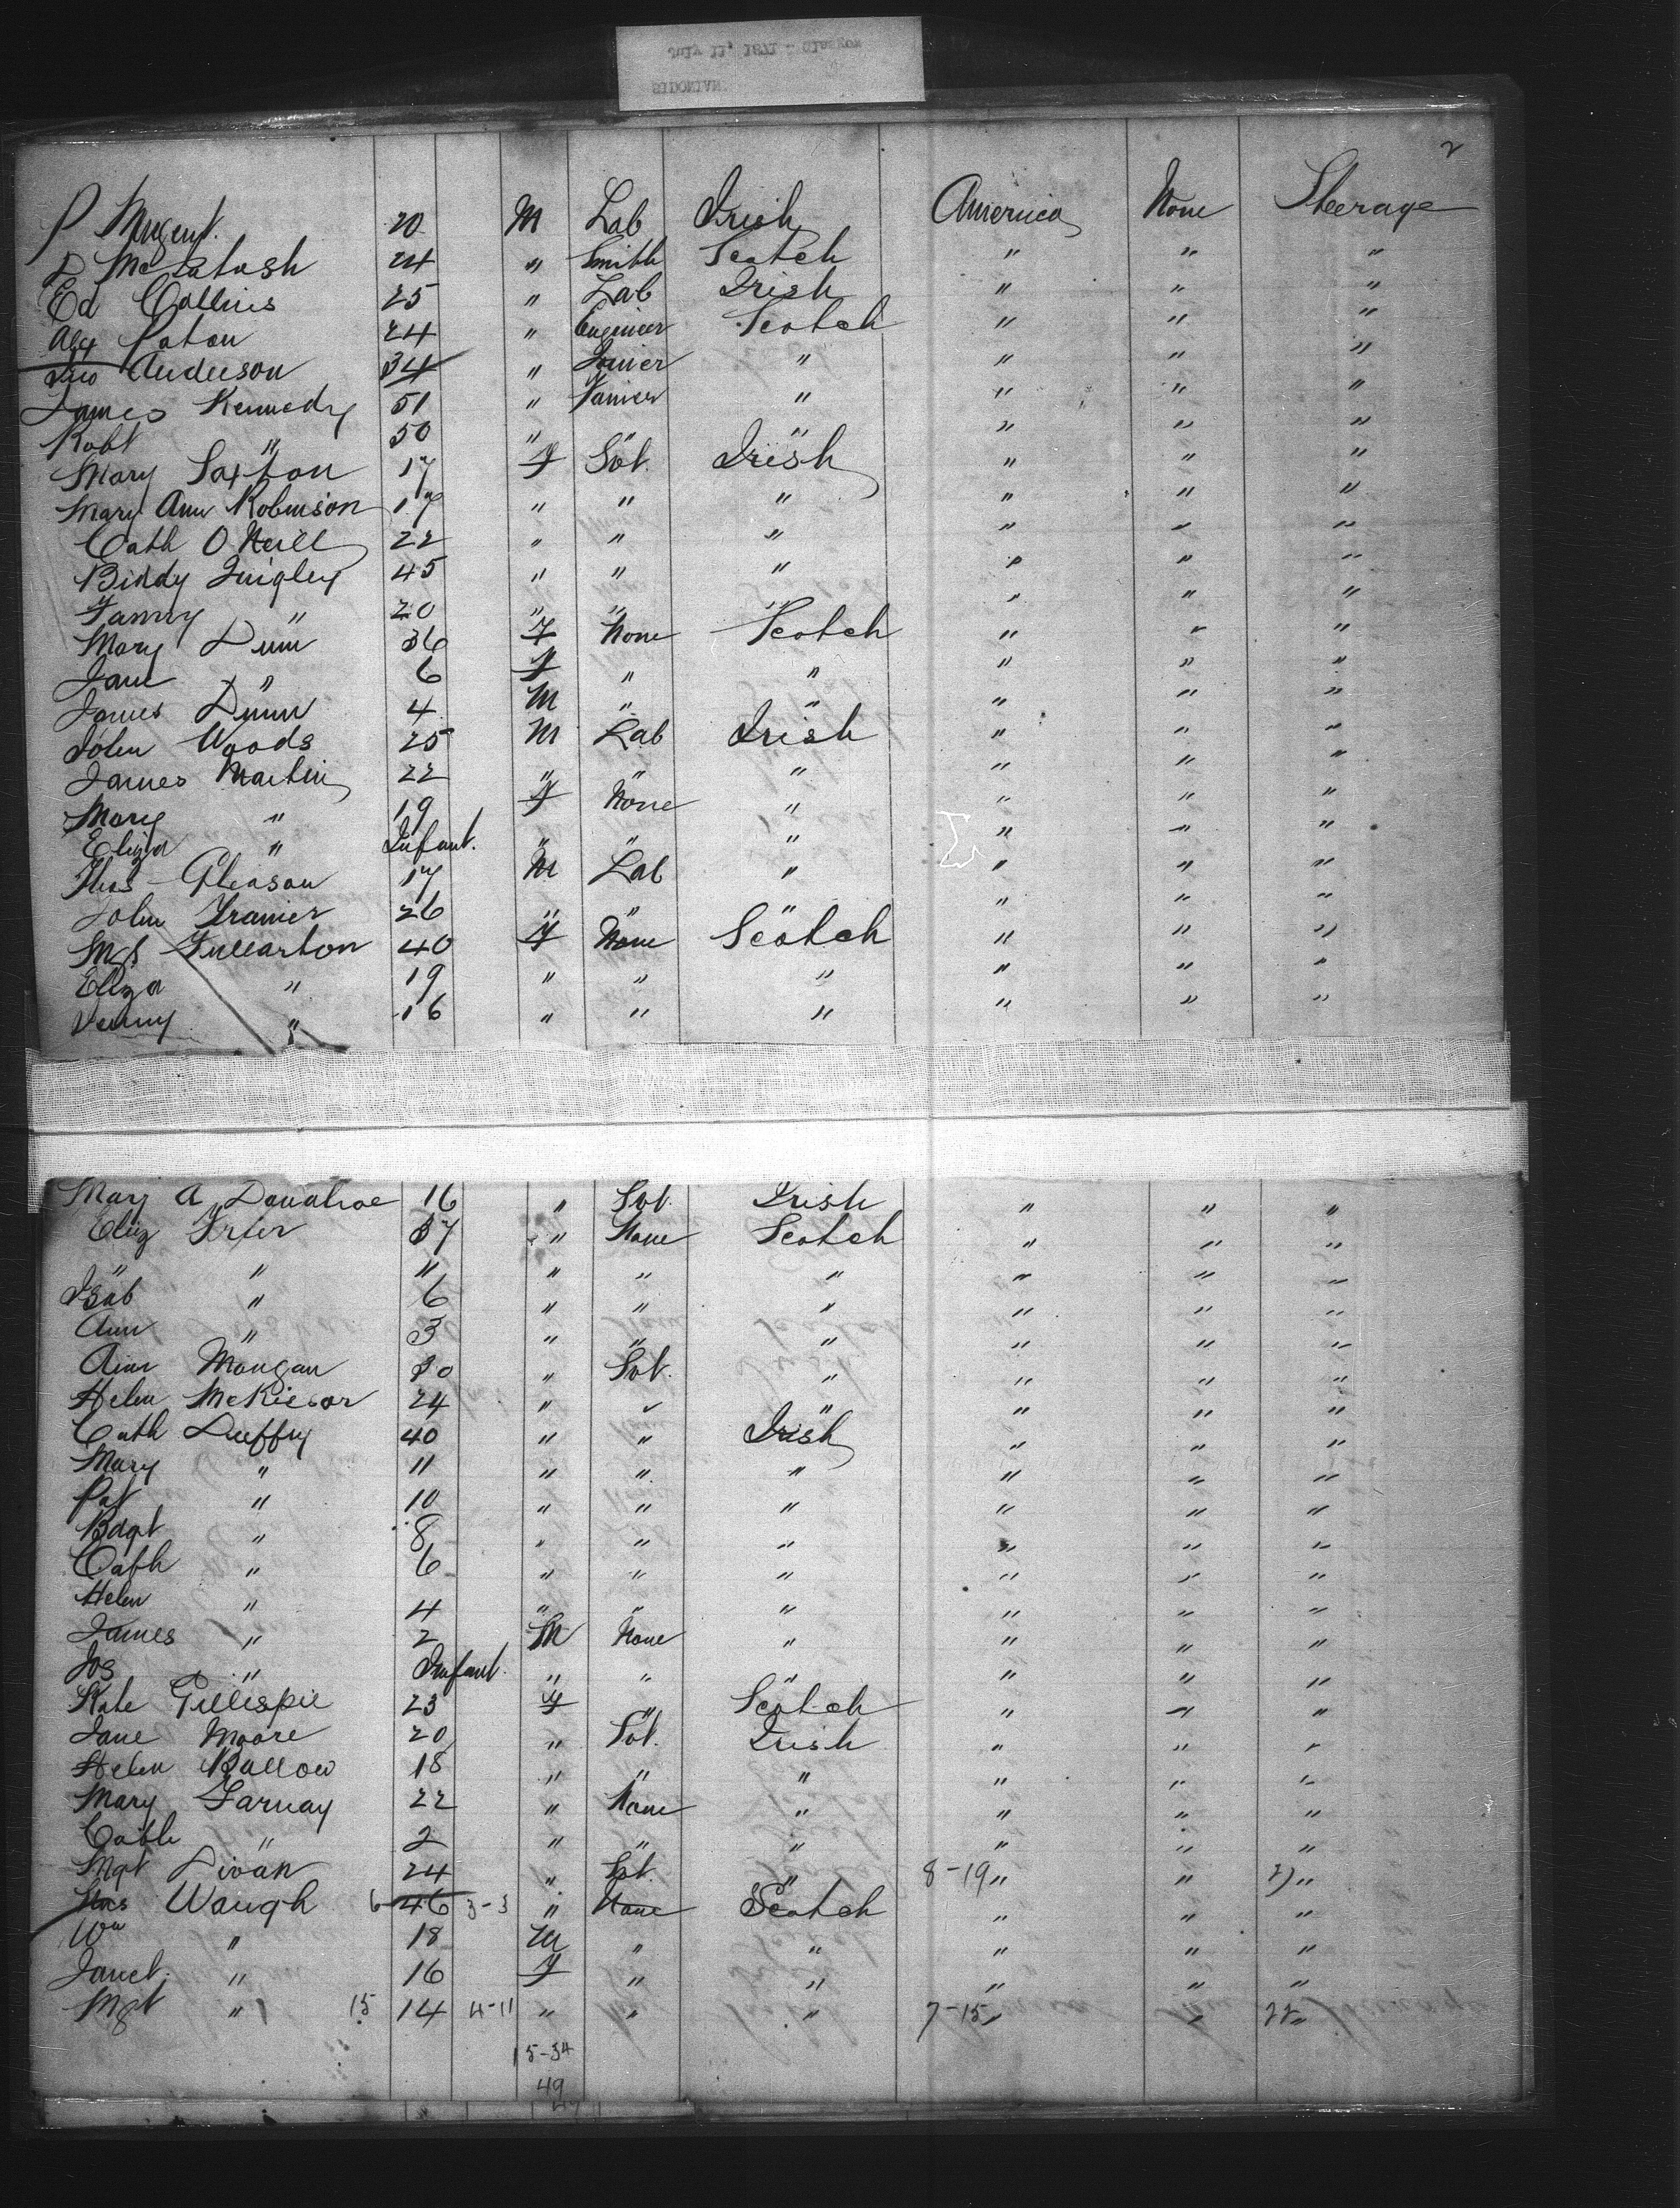 2
P Nugent. 20 M Lab Irish America None Steerage
D McIntosh 24 " Smith Scotch " " "
Ed Collins 25 " Lab Irish " " "
Alex Paton 24 " Engineer Scotch " " "
Jno Anderson 34 " Joiner " " " "
James Kennedy 51 " Farmer " " " "
Robt " 50 " " " " " "
Mary Saxton 17 F Svt. Irish " " "
Mary Ann Robinson 17 " " " " " "
Cath O Neill 22 " " " " " "
Biddy Quigley 45 " " " " " "
Fanny " 20 " " " " " "
Mary Dunn 36 F None Scotch " " "
Jane " 6 F " " " " "
James Dunn 4 M " " " " "
John Woods 25 M Lab Irish " " "
James Martin 22 " " " " " "
Mary " 19 F None " " " "
Eliza " Infant. " " " " " "
Thos Gleason 17 M Lab " " " "
John 26 " " " " " "
Mgt Fullarton 40 F None Scotch " " "
Eliza " 19 " " " " " "
Jenny " 16 " " " " " "
Mary A Donahoe 16 " Svt. Irish " " "
Eliz 37 " None Scotch " " "
" " 11 " " " " " "
Isab " 6 " " " " " "
Ann " 3 " " " " " "
Ann Mongan 30 " Svt. " " " "
Helen 24 " " " " " "
Cath Duffy 40 " " Irish " " "
Mary " 11 " " " " " "
Pat " 10 " " " " " "
Bdgt " 8 " " " " " "
Cath " 6 " " " " " "
Helen " 4 " " " " " "
James " 2 M None " " " "
Jos " Infant. " " " " " "
Kate Gillespie 23 F " Scotch " " "
Jane Moore 20 " Svt. Irish " " "
Helen Ballow 18 " " " " " "
Mary Farnay 22 " None " " " "
Cath " 2 " " " " " "
Mgt Divan 24 " Svt. " 8-19 " " "
Waugh 6 46 3-3 " None Scotch " " "
Wm " 18 M " " " " "
Janet " 16 F " " " " "
Mgt " 15 14 4-11 " " " 7-15 " " 22 "
15-34
49